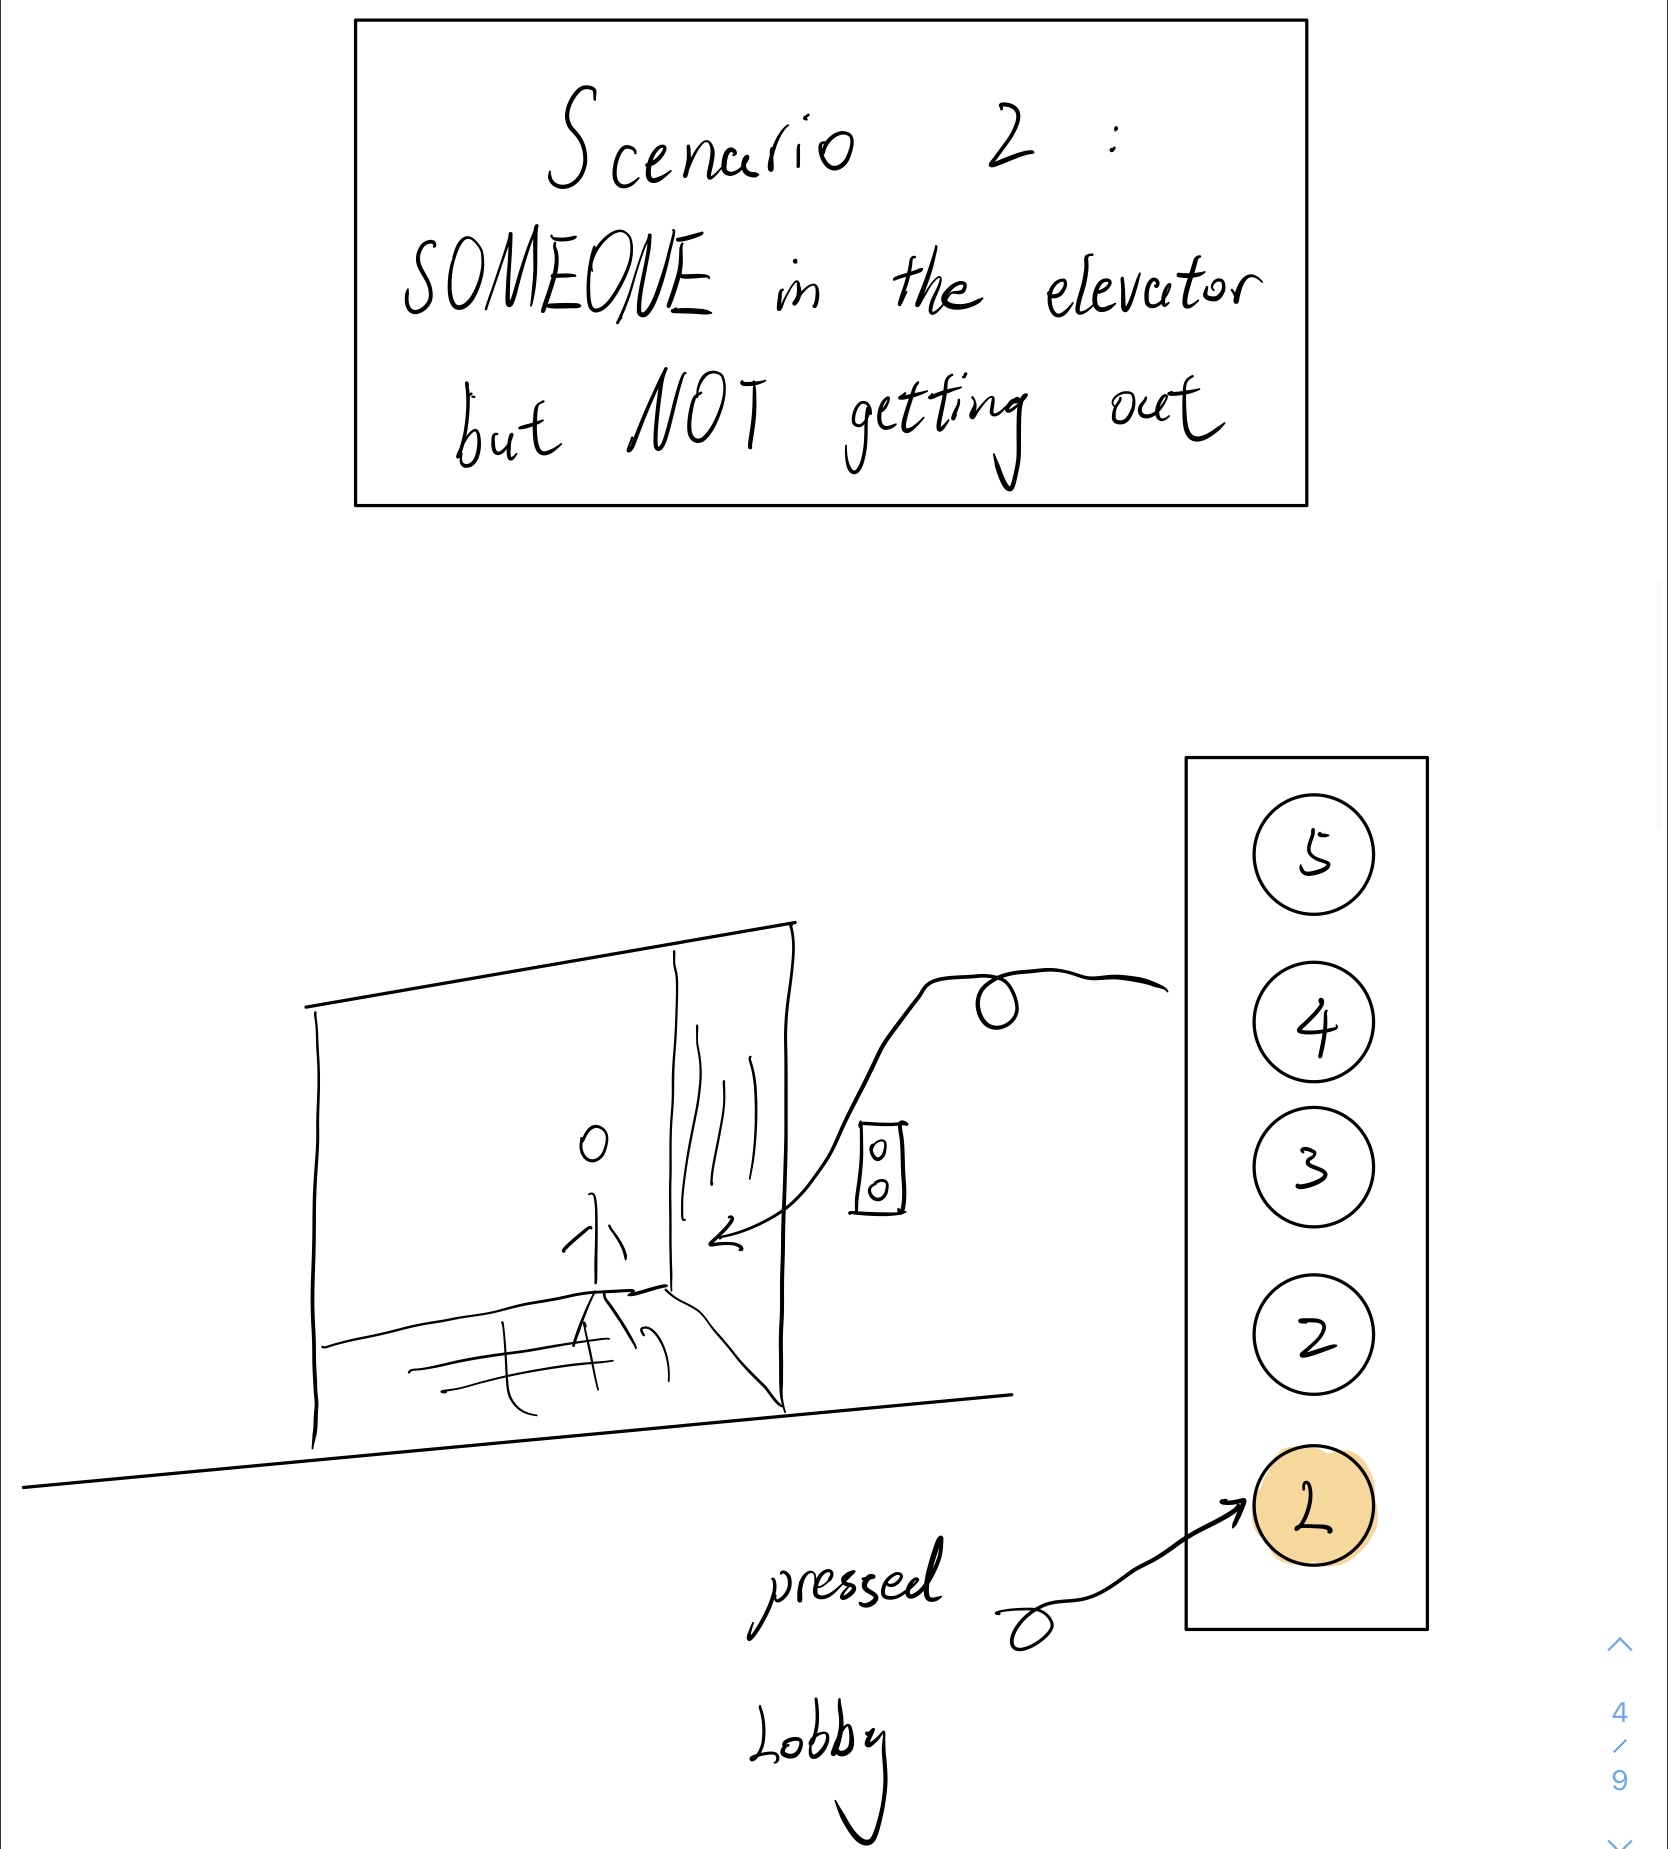 Scenario 2 :
SOMEONE in the elevator
but NOT getting out
5
4
3
2
L
pressed
Lobby
4
/
9